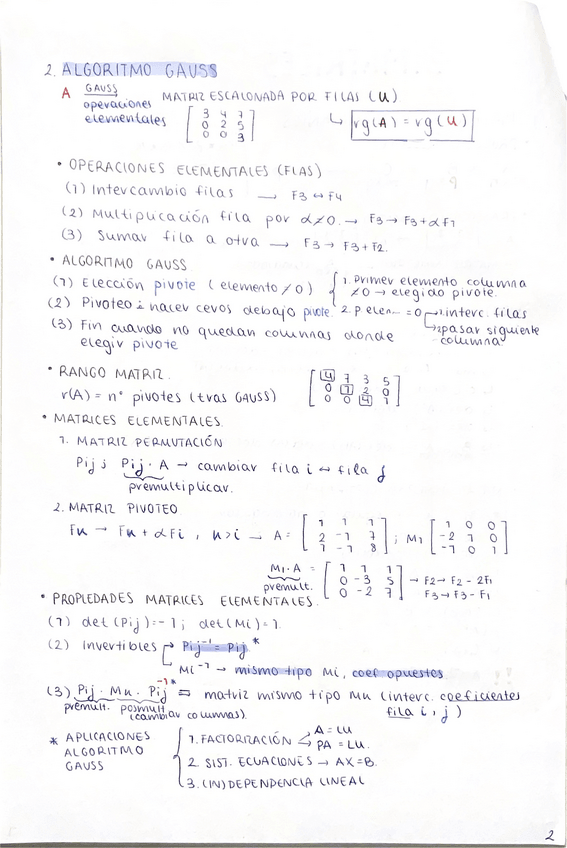 2. ALGORITMO GAUSS
A GAUSS operaciones elementales MATRIZ ESCALONADA POR FILAS (U)
[3 4 7
0 2 5
0 0 3]
↳ rg(A) = rg(U)
• OPERACIONES ELEMENTALES (FLAS)
(1) Intercambio filas → F3 ↔ F4
(2) Multiplicación fila por α≠0. → F3 → F3 + αF1
(3) Sumar fila a otra → F3 → F3 + F2.
• ALGORITMO GAUSS
(1) Elección pivote (elemento ≠ 0) { 1. Primer elemento columna
≠0 → elegido pivote.
(2) Pivoteo: hacer ceros debajo pivote. 2. P elem = 0 → interc. filas
→ pasar siguiente
columna
(3) Fin cuando no quedan columnas donde
elegir pivote
• RANGO MATRIZ.
r(A) = nº pivotes (tras GAUSS)
[4 7 3 5
0 1 2 0
0 0 4 1]
• MATRICES ELEMENTALES.
1. MATRIZ PERMUTACIÓN
Pij ; Pij · A → cambiar fila i ↔ fila j
premultiplicar.
2. MATRIZ PIVOTEO
Fk → Fk + αFi , k>i → A = [1 1 1
2 -1 7
1 -1 8] ; M1 [1 0 0
-2 1 0
-1 0 1]
M1 · A = [1 1 1
0 -3 5
0 -2 7] → F2 → F2 - 2F1
F3 → F3 - F1
premult.
• PROPIEDADES MATRICES ELEMENTALES.
(1) det (Pij) = -1 ; det (Mi) = 1.
(2) Invertibles → Pij⁻¹ = Pij *
Mi⁻¹ → mismo tipo Mi, coef opuestos
(3) Pij · Mk · Pij⁻¹* = matriz mismo tipo Mk (interc. coeficientes
premult. posmult. (cambiar columnas). fila i, j)
* APLICACIONES
ALGORITMO
GAUSS
1. FACTORIZACIÓN → A = LU
PA = LU.
2. SIST. ECUACIONES → AX = B.
3. (IN)DEPENDENCIA LINEAL
2